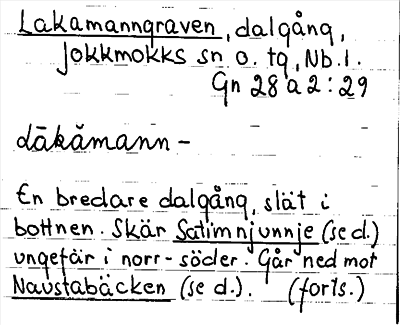 Lakamanngraven, dalgång,
Jokkmokks sn o. tg, Nb. l.
Gn 28 a 2 : 29
lākămann-
En bredare dalgång, slät i
bottnen. Skär Satimnjunnje (se d.)
ungefär i norr-söder. Går ned mot
Naustabäcken (se d.). (forts.)